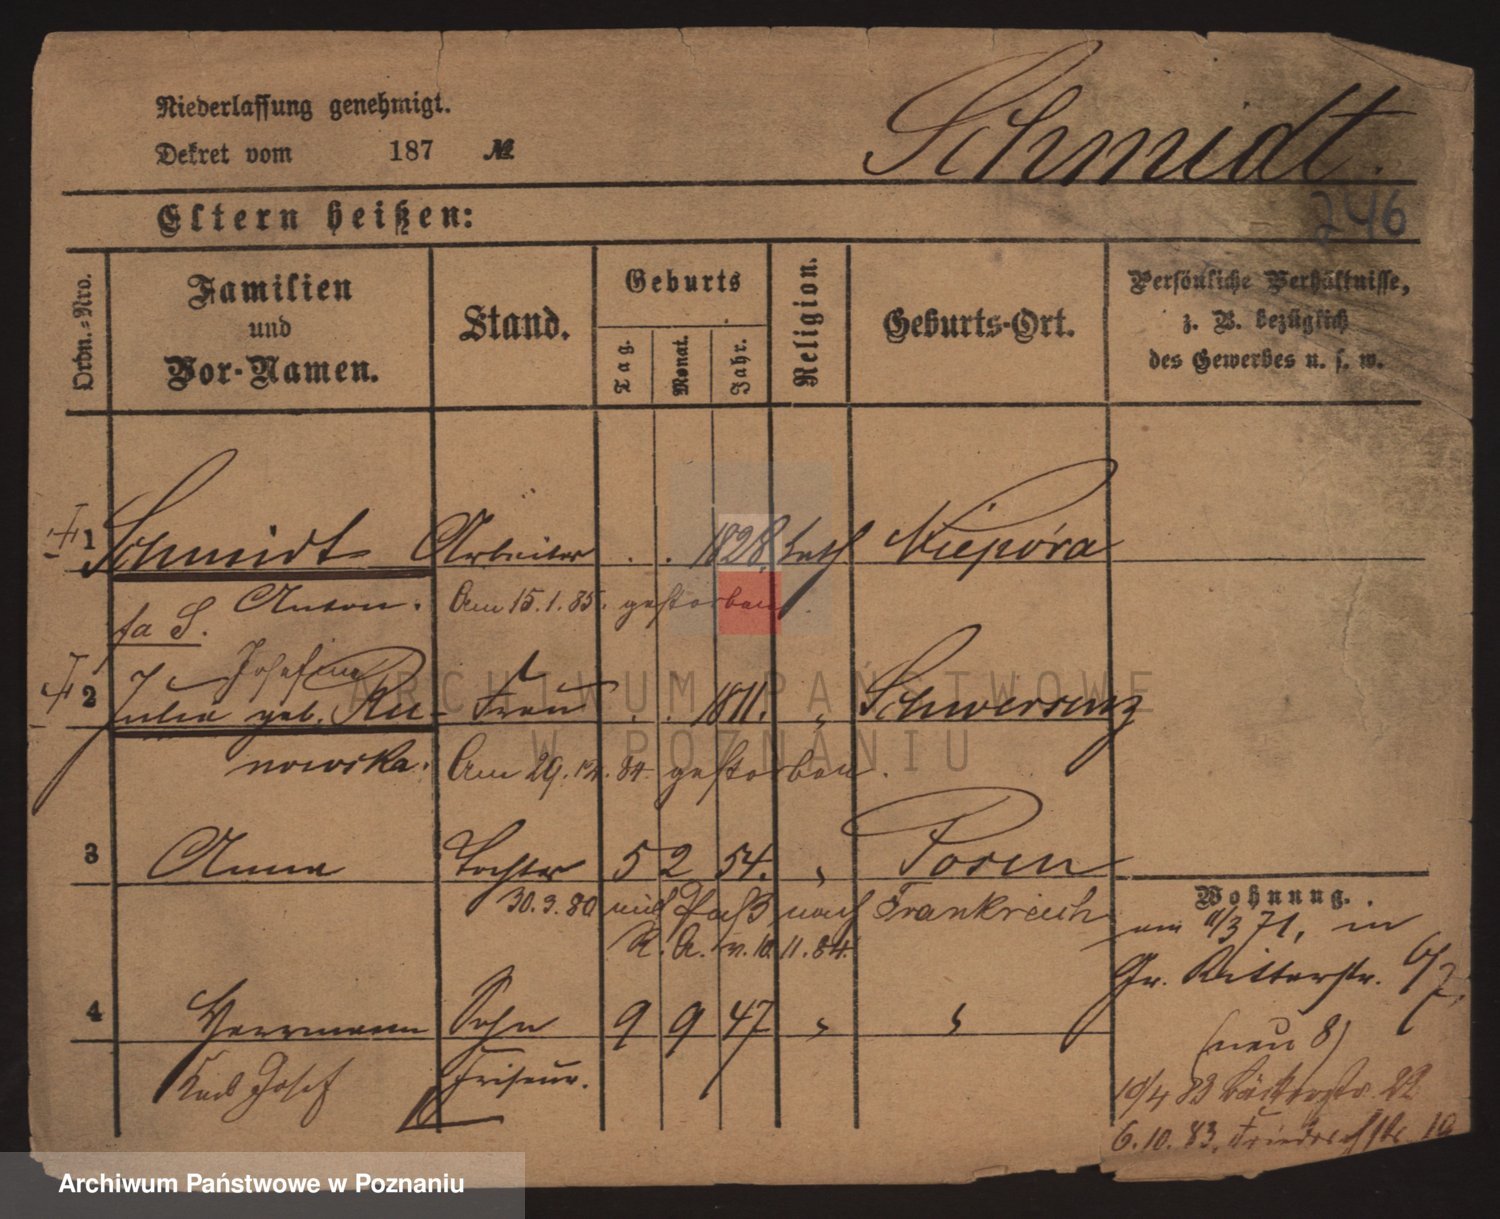 Niederlassung genehmigt.
Dekret vom 187 №
Schmidt.
246
Eltern heißen:
Ordn.-Nro.
Familien und Vor-Namen.
Stand.
Geburts
Tag. Monat. Jahr.
Religion.
Geburts-Ort.
Persönliche Verhältnisse,
z. B. bezüglich
des Gewerbes u. s. w.
1 Schmidt Arbeiter . . 1828. kath. Niepóra
fa S. Anton. Am 15.1.85. gestorben.
Josefine
2 Julia geb. Ru- Frau . . 1811. " Schwersenz
nowska. Am 29.12.84. gestorben.
3 Anna Tochter 5 2 54. " Posen
30.3.80 mit Paß nach Frankreich
R. A. v. 10.11.84.
4 Herrmann Sohn 9 9 47 " "
Karl Josef Friseur.
Wohnung.
am 11/3 71, in
Gr. Ritterstr. 6/7.
(neu 8)
10/4 83 Bäckerstr. 22
6.10.83. Friedrichstr. 19
ARCHIWUM PAŃSTWOWE
W POZNANIU
Archiwum Państwowe w Poznaniu